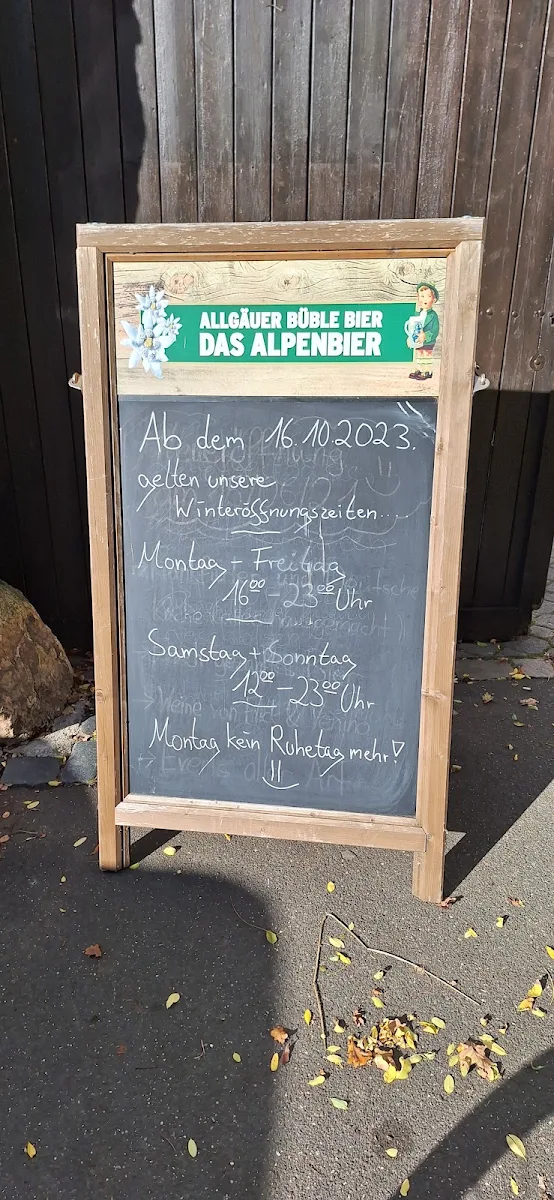 ALLGÄUER BÜBLE BIER
DAS ALPENBIER
Ab dem 16.10.2023.
gelten unsere
Winteröffnungszeiten...
Montag - Freitag
16⁰⁰ - 23⁰⁰ Uhr
Samstag + Sonntag
12⁰⁰ - 23⁰⁰ Uhr
Montag kein Ruhetag mehr!